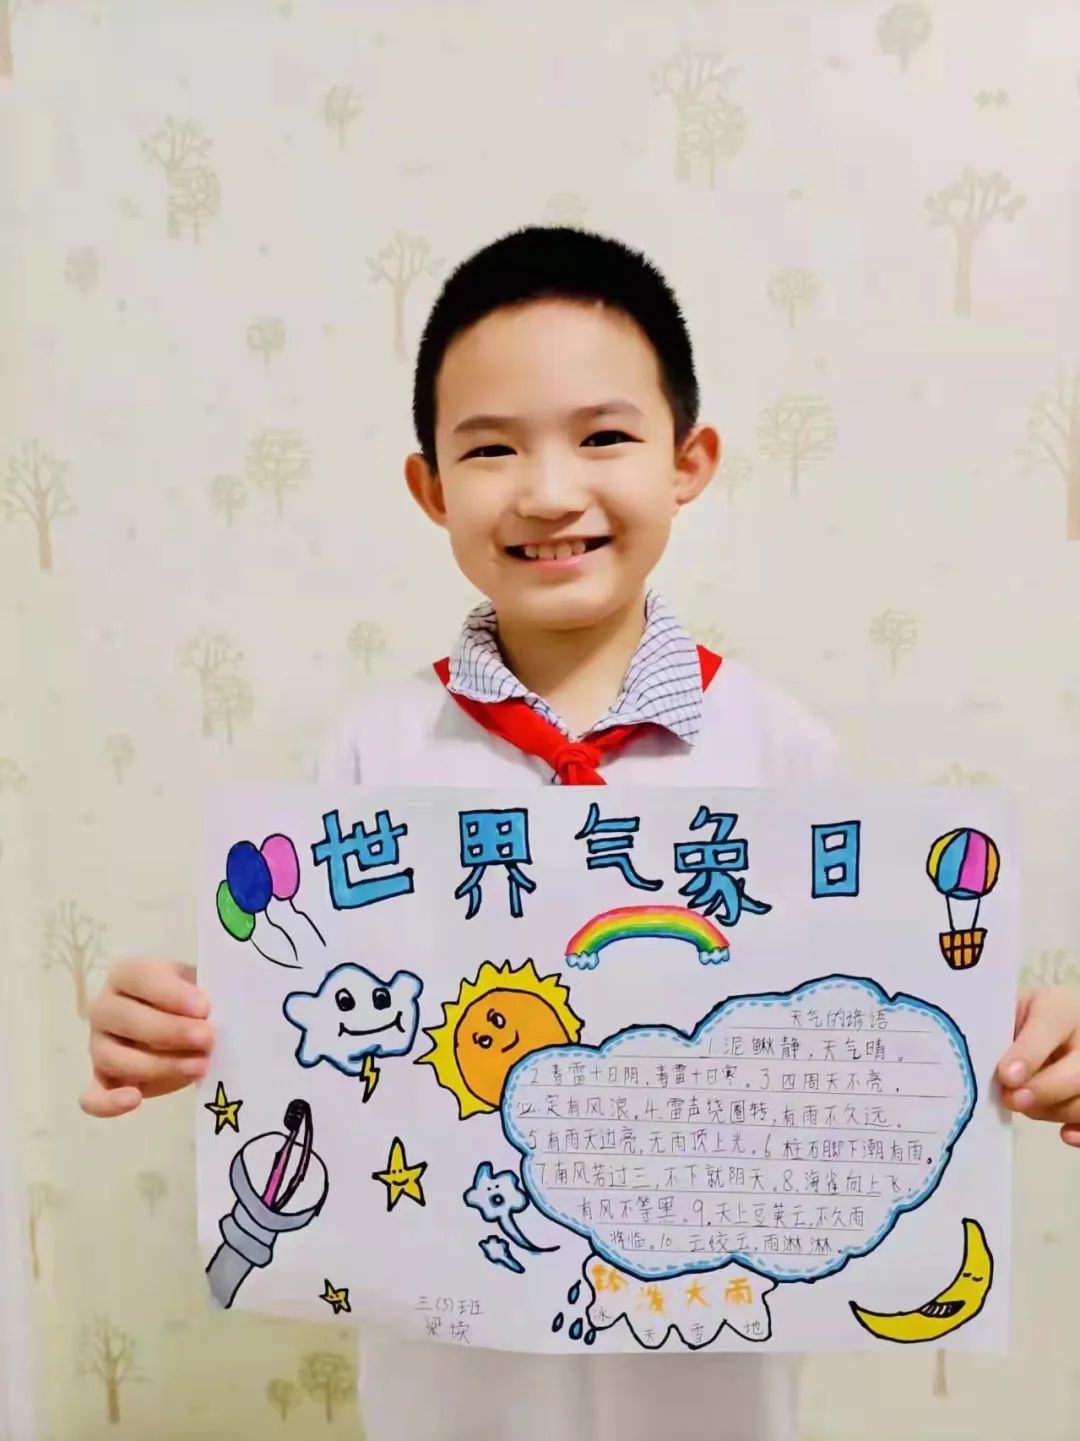 世界气象日
天气的谚语
1泥鳅静,天气晴。
2.春雷十日阴,春雷十日寒。3.四周天不亮,
必定有风浪。4.雷声绕圈转,有雨不久远。
5有雨天边亮,无雨顶上光。6.柱石脚下潮有雨。
7.南风若过三,不下就阴天。8.海雀向上飞,
有风不等黑。9.天上豆荚云,不久雨
将临。10云绞云,雨淋淋。
泼大雨
冰天雪地
三(3)班
梁